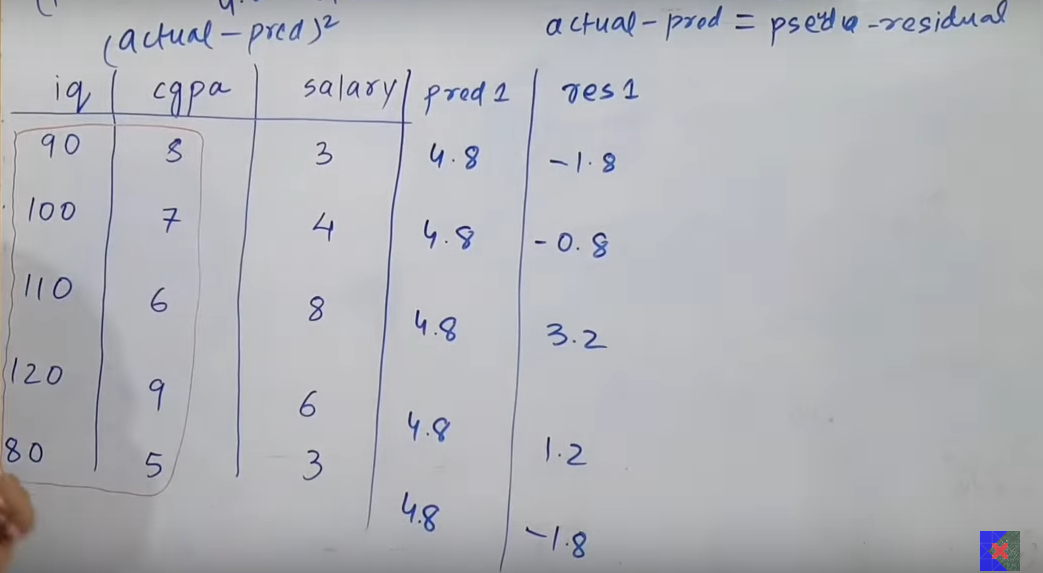 (actual - pred)²
actual - pred = pseudo - residual
iq cgpa salary pred 1 res 1
90 8 3 4.8 -1.8
100 7 4 4.8 -0.8
110 6 8 4.8 3.2
120 9 6 4.8 1.2
80 5 3 4.8 -1.8